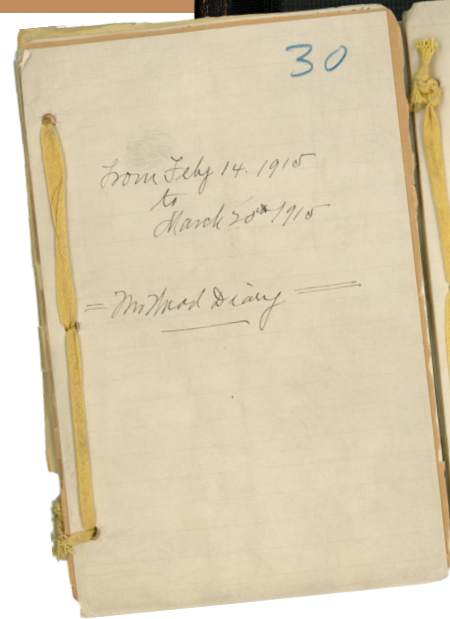 30
From Feby 14. 1915
to
March 20th 1915
= Diary =